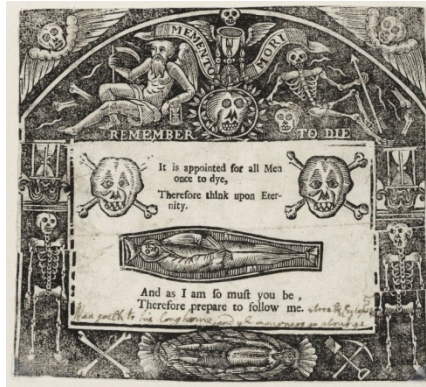 MEMENTO MORI
REMEMBER TO DIE
It is appointed for all Men
once to dye,
Therefore think upon Eter-
nity.
And as I am so must you be,
Therefore prepare to follow me.
Man goeth to his long home and ye mourners go about ye